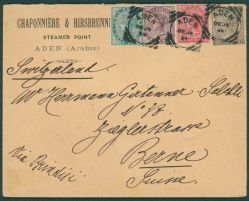 CHAPONNIÈRE & HIRSBRUNNE
STEAMER POINT
ADEN (Arabie)
ADEN
ADEN
ADEN
Switzerland
Herrmann Girtanner
Zieglerstrasse
Berne
Suisse
via Brindisi